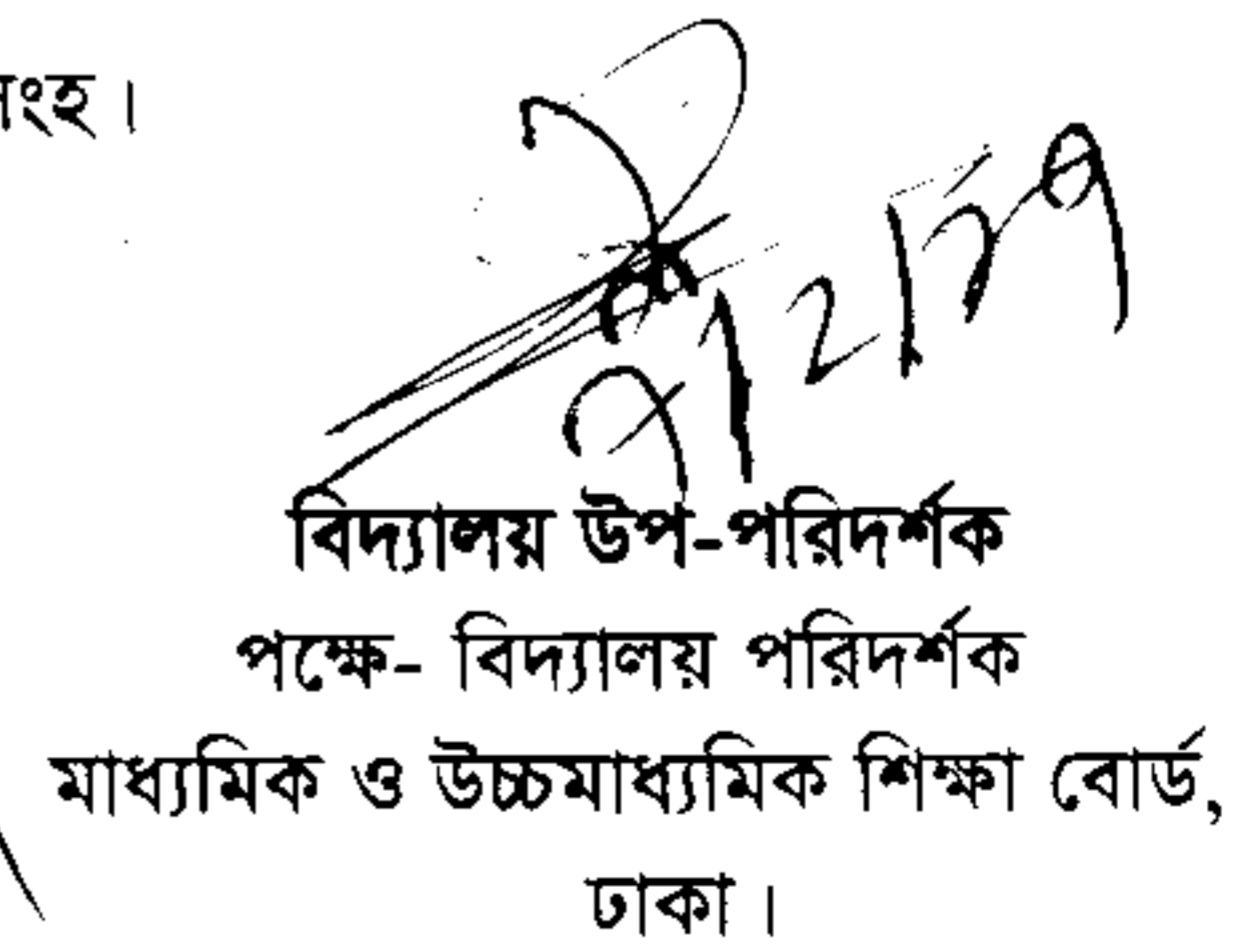 িংহ।
বিদ্যালয় উপ-পরিদর্শক
পক্ষে- বিদ্যালয় পরিদর্শক
মাধ্যমিক ও উচ্চমাধ্যমিক শিক্ষা বোর্ড,
ঢাকা।